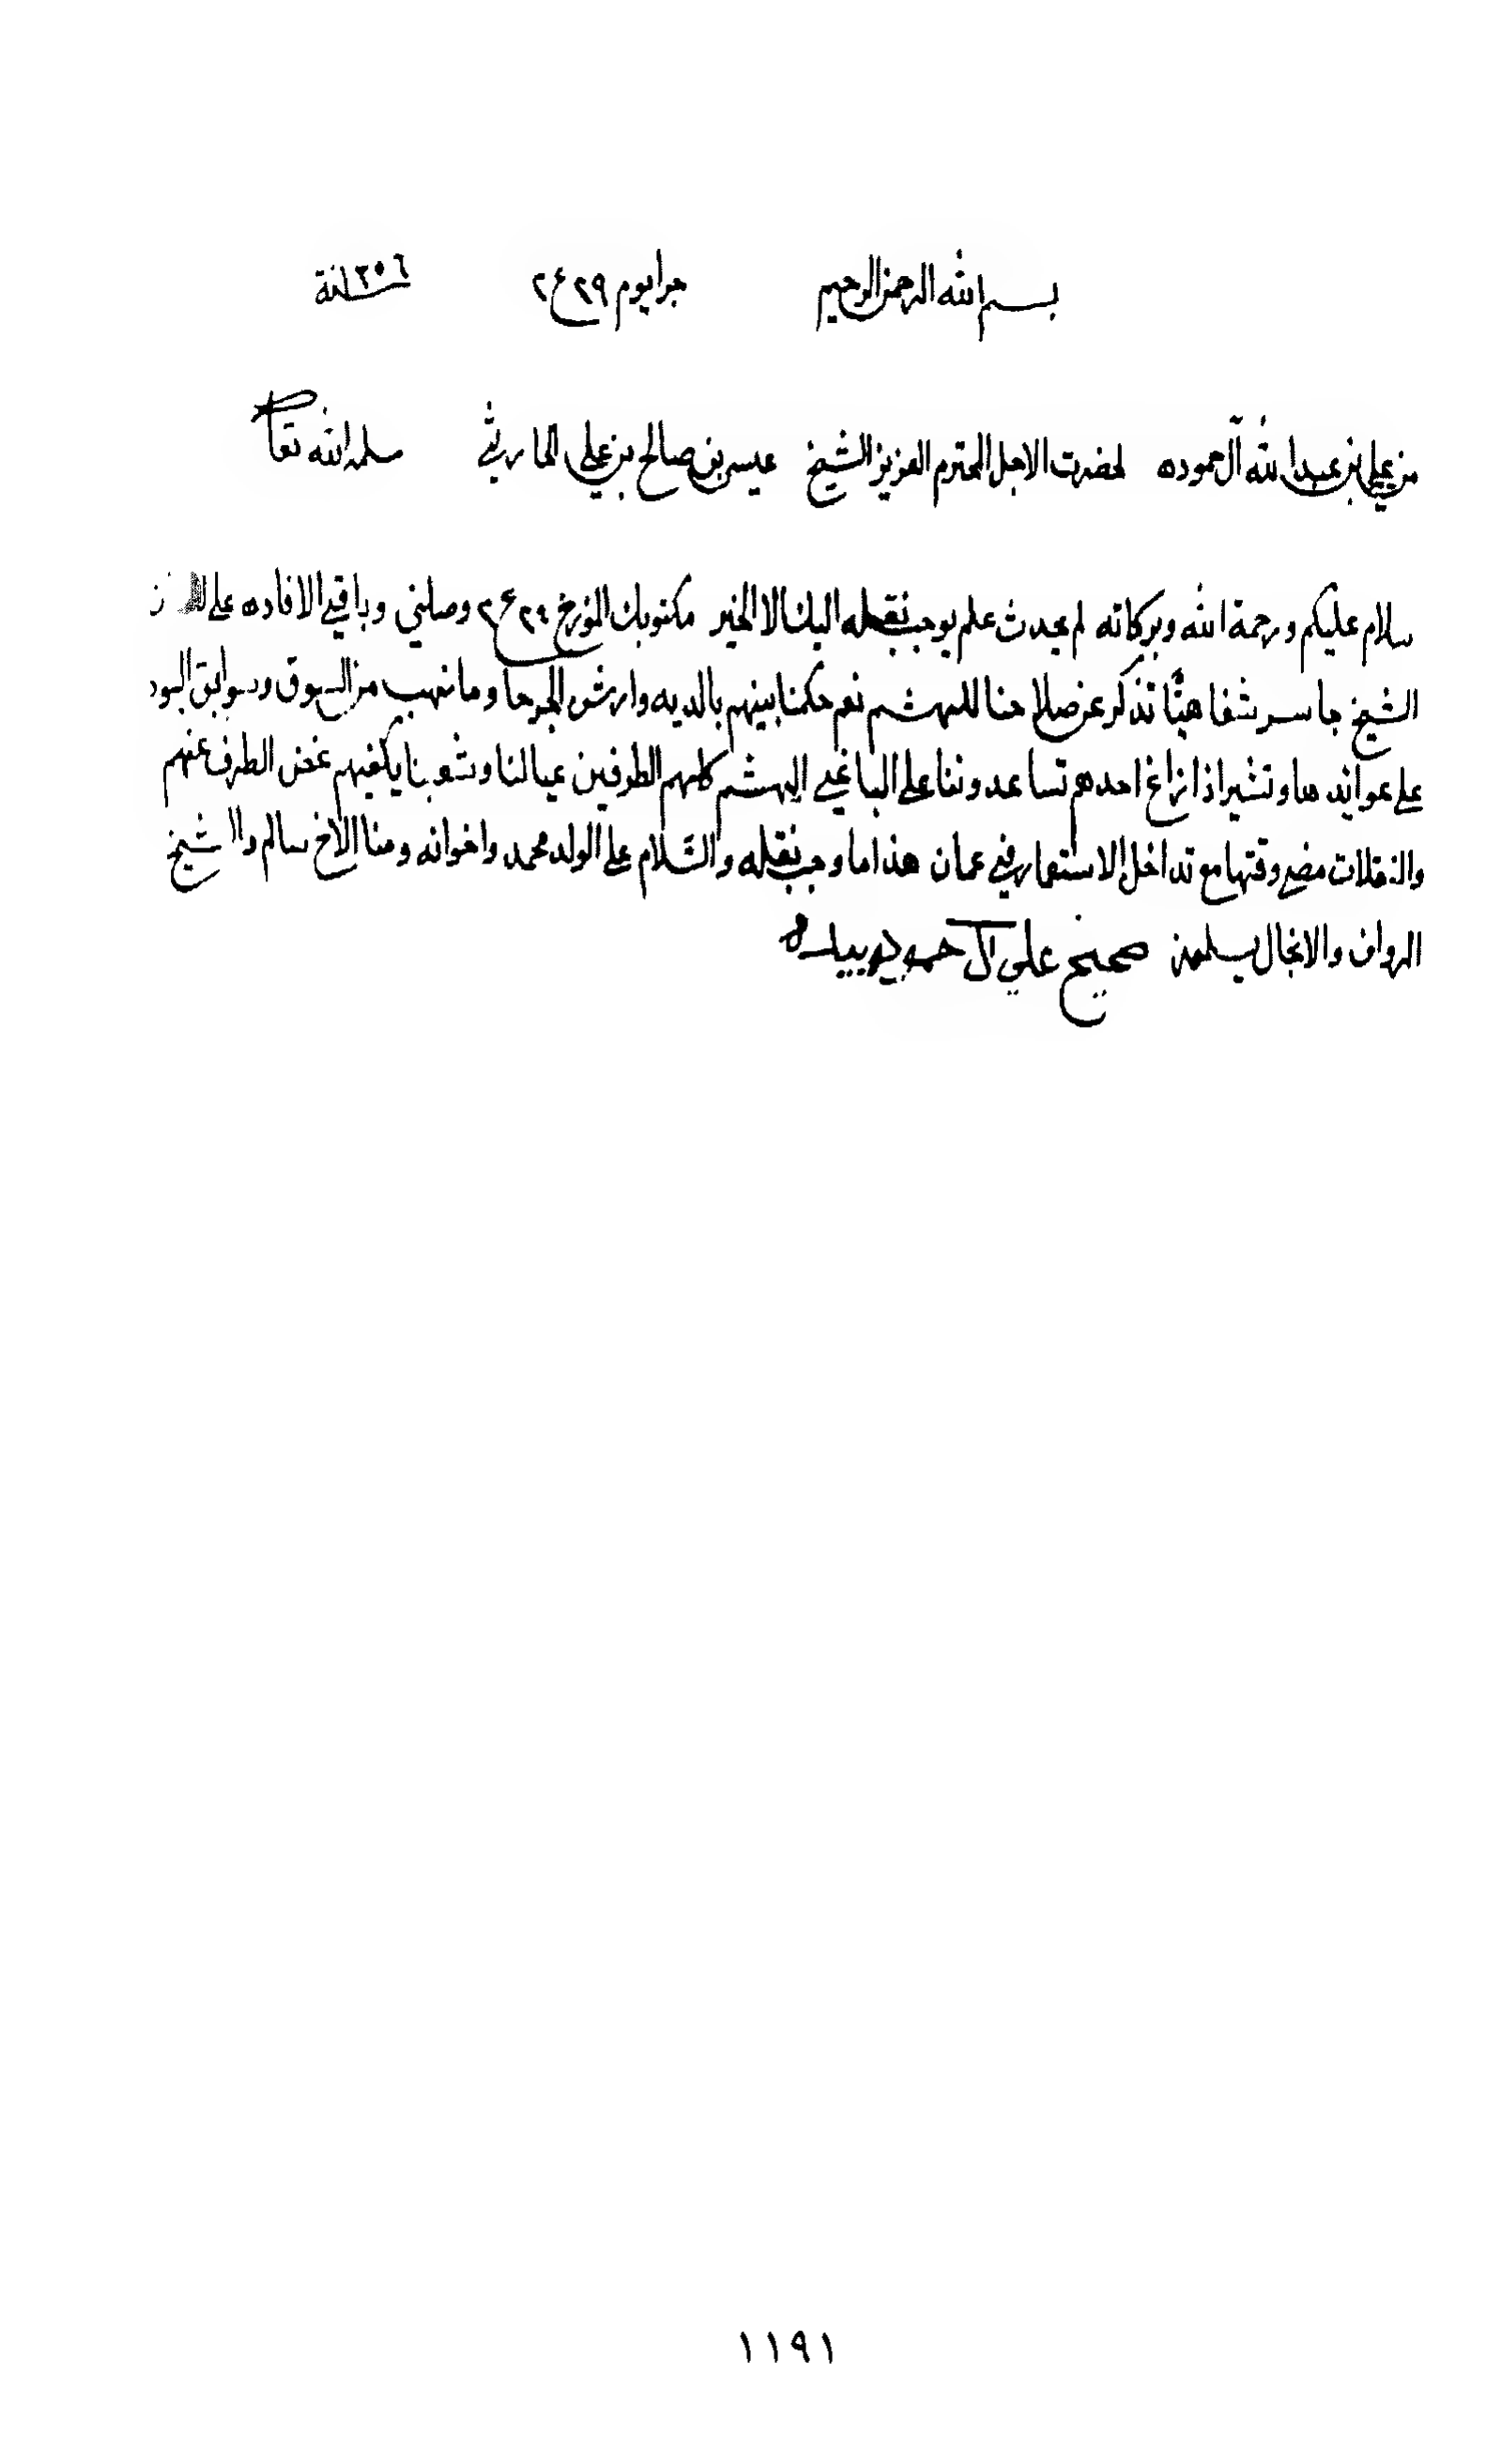 بسم الله الرحمن الرحيم جرا يوم ٢٩ ع٢ سنة
من علي بن عبدالله آل حموده لحضرت الاجل المحترم العزيز الشيخ عيسى بن صالح بن علي الحارثي سلمه الله تعا
سلام عليكم ورحمة الله وبركاته لم يحدث علم يوجب نقله اليك الا الخير مكتوبك المؤرخ ٢٤ ع٢ وصلني وباقي الافاده على
الشيخ جاسر شفاهيًا تذكر عن صلاحنا للهشم نعم حكمنا بينهم بالديه وارش الجرحا وما نهب من السوق وسوابق
على عوايدها وتشير اذا زاغ احدهم تساعدوننا على الباغي الهشم كلهم الطرفين عيالنا وشعبنا يكفيهم غض الطرف عنهم
والنقلات مضى وقتها مع تداخل الاستعمار في عمان هذا ما وجب نقله والسّلام على الولد محمد واخوانه ومنا الاخ سالم والشيخ
والانجال يسلمون صحيح علي آل حموده بيده
١١٩١